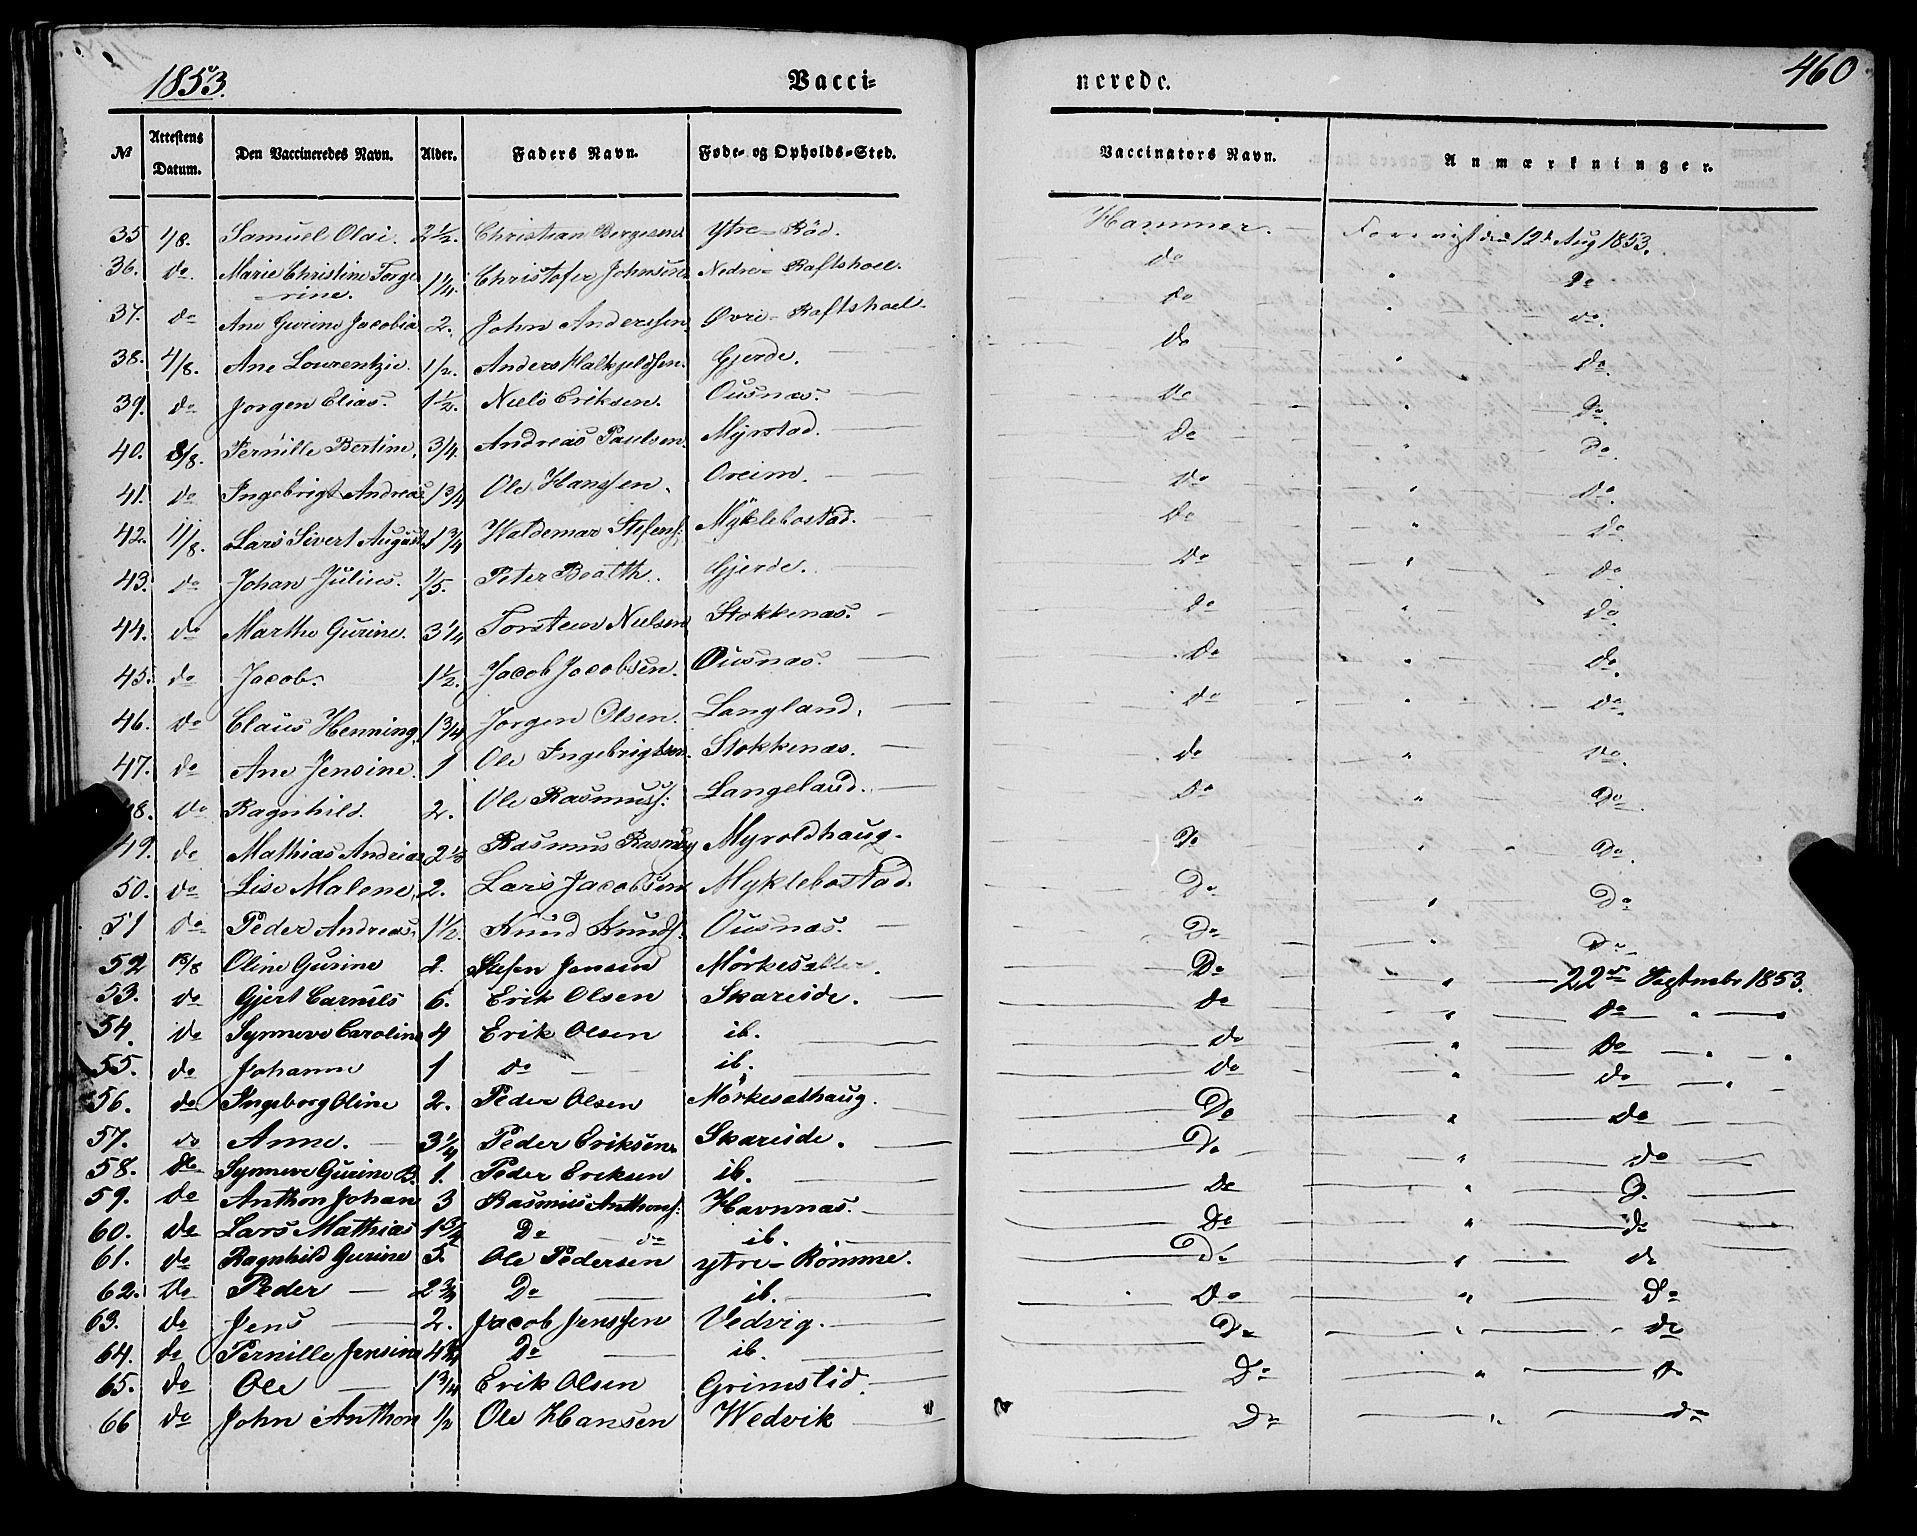 1853.
Vacci-
nerede.
460
№ Attestens Datum. Den Vaccineredes Navn. Alder. Faders Navn. Føde- og Opholds-Sted. Vaccinators Navn. Anmærkninger.
35 4/8. Samuel Olai. 2½. Christian Bergesen Ytre-Röd. Hammer. Forevist den 12te Aug 1853.
36. do Marie Christine Torge- 1¼. Christofer Johnsen Nedre- Raftshoel. do " Do
rine.
37. do Ane Gurine Jacobia 2. John Anderssen. Øvre- Raftshoel. do " do.
38. 4/8. Ane Lourentzie. 1/2. Anders Gjerde. do " Do.
39. do Jorgen Elias. 1½. Niels Eriksen. Ousnæs. do " Do.
40. 8/8. Pernille Bertine, 3/4. Andreas Paulsen. Myrstad. Do " Do.
41. do Ingebrigt Andreas 1¾ Ole Hanssen. Oreim. do " Do.
42. 11/8. Lars Sivert August. 1¾ Waldemar Stefens: Myklebostad. Do " Do.
43. do Johan Julius. 1/5. Peter Boalth. Gjerde. Do " Do.
44. do Marthe Gurine. 3¼ Torsteen Nielsen Stokkenæs. do " do.
45. do Jacob. 1½. Jacob Jacobsen. Ousnæs. Do " do.
46. do Claus Henning. 1¾ Jorgen Olsen. Langland. do " do.
47. do Ane Jensine. 1 Ole Ingebrigtsen. Stokkenæs. do " do.
48. do Ragnhild. 2. Ole Rasmuss: Langeland. Do " Do.
49. do Mathias Andrias 2½ Rasmus Rasmuss Myroldhaug. Do " Do.
50. do Lise Malene, 2. Lars Jacobsen Myklebostad. Do " Do.
51 do Peder Andreas, 1½. Knud Knuds. Ousnæs. Do " Do.
52 18/8 Oline Gurine 2. Stefen Jensen Mörkesætter. Do " 22de September 1853.
53. do Gjert Carnils 6. Erik Olsen Skareide. do " Do "
54. do Synneve Caroline 4 Erik Olsen ib. do " Do "
55. do Johanne 1 do ib. do " do "
56. do Ingeborg Oline 2. Peder Olsen Mörkesæthaug. Do " do
57. do Anne. 3¼ Peder Eriksen Skareide. Do " do
58. do Synneve Gurine B. 1. Peder Eriksen ib. do " D.
59. do Anthon Johan 3 Rasmus Anthons: Havnnæs. Do " do
60. do Lars Mathias 1¾ Do do ib. Do " do
61. do Ragnhild Gurine 5. Ole Pedersen ytre-Römme. Do " Do
62. do Peder 2¾ Do ib. Do " do
63. do Jens 2. Jacob Jenssen Vedvig. Do " do
64. do Pernille Jensine 4¾ Do ib. Do " do
65. do Ole 1¾ Erik Olsen Grimstid. Do " do
66 do John Anthon 1/2 Ole Hansen Wedvik Do " do